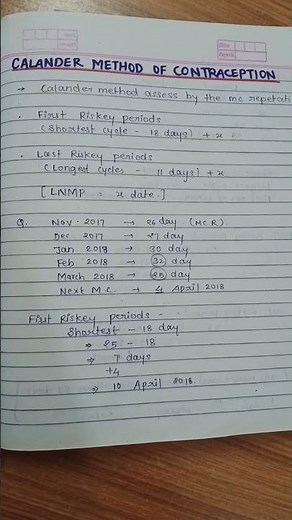 CALANDER METHOD OF CONTRACEPTION
→ Calander method assess by the mc repetati
• First Riskey periods
(Shortest cycle - 18 days) + x
• Last Riskey periods
(Longest cycles - 11 days) + x
[LNMP = x date.]
Q. Nov. 2017 → 26 day (MCR)
Dec 2017 → 27 day
Jan 2018 → 30 day
Feb 2018 → 32 day
March 2018 → 25 day
Next MC → 4 April 2018
First Riskey periods -
Shortest - 18 day
⇒ 25 - 18
⇒ 7 days
+4
⇒ 10 April 2018